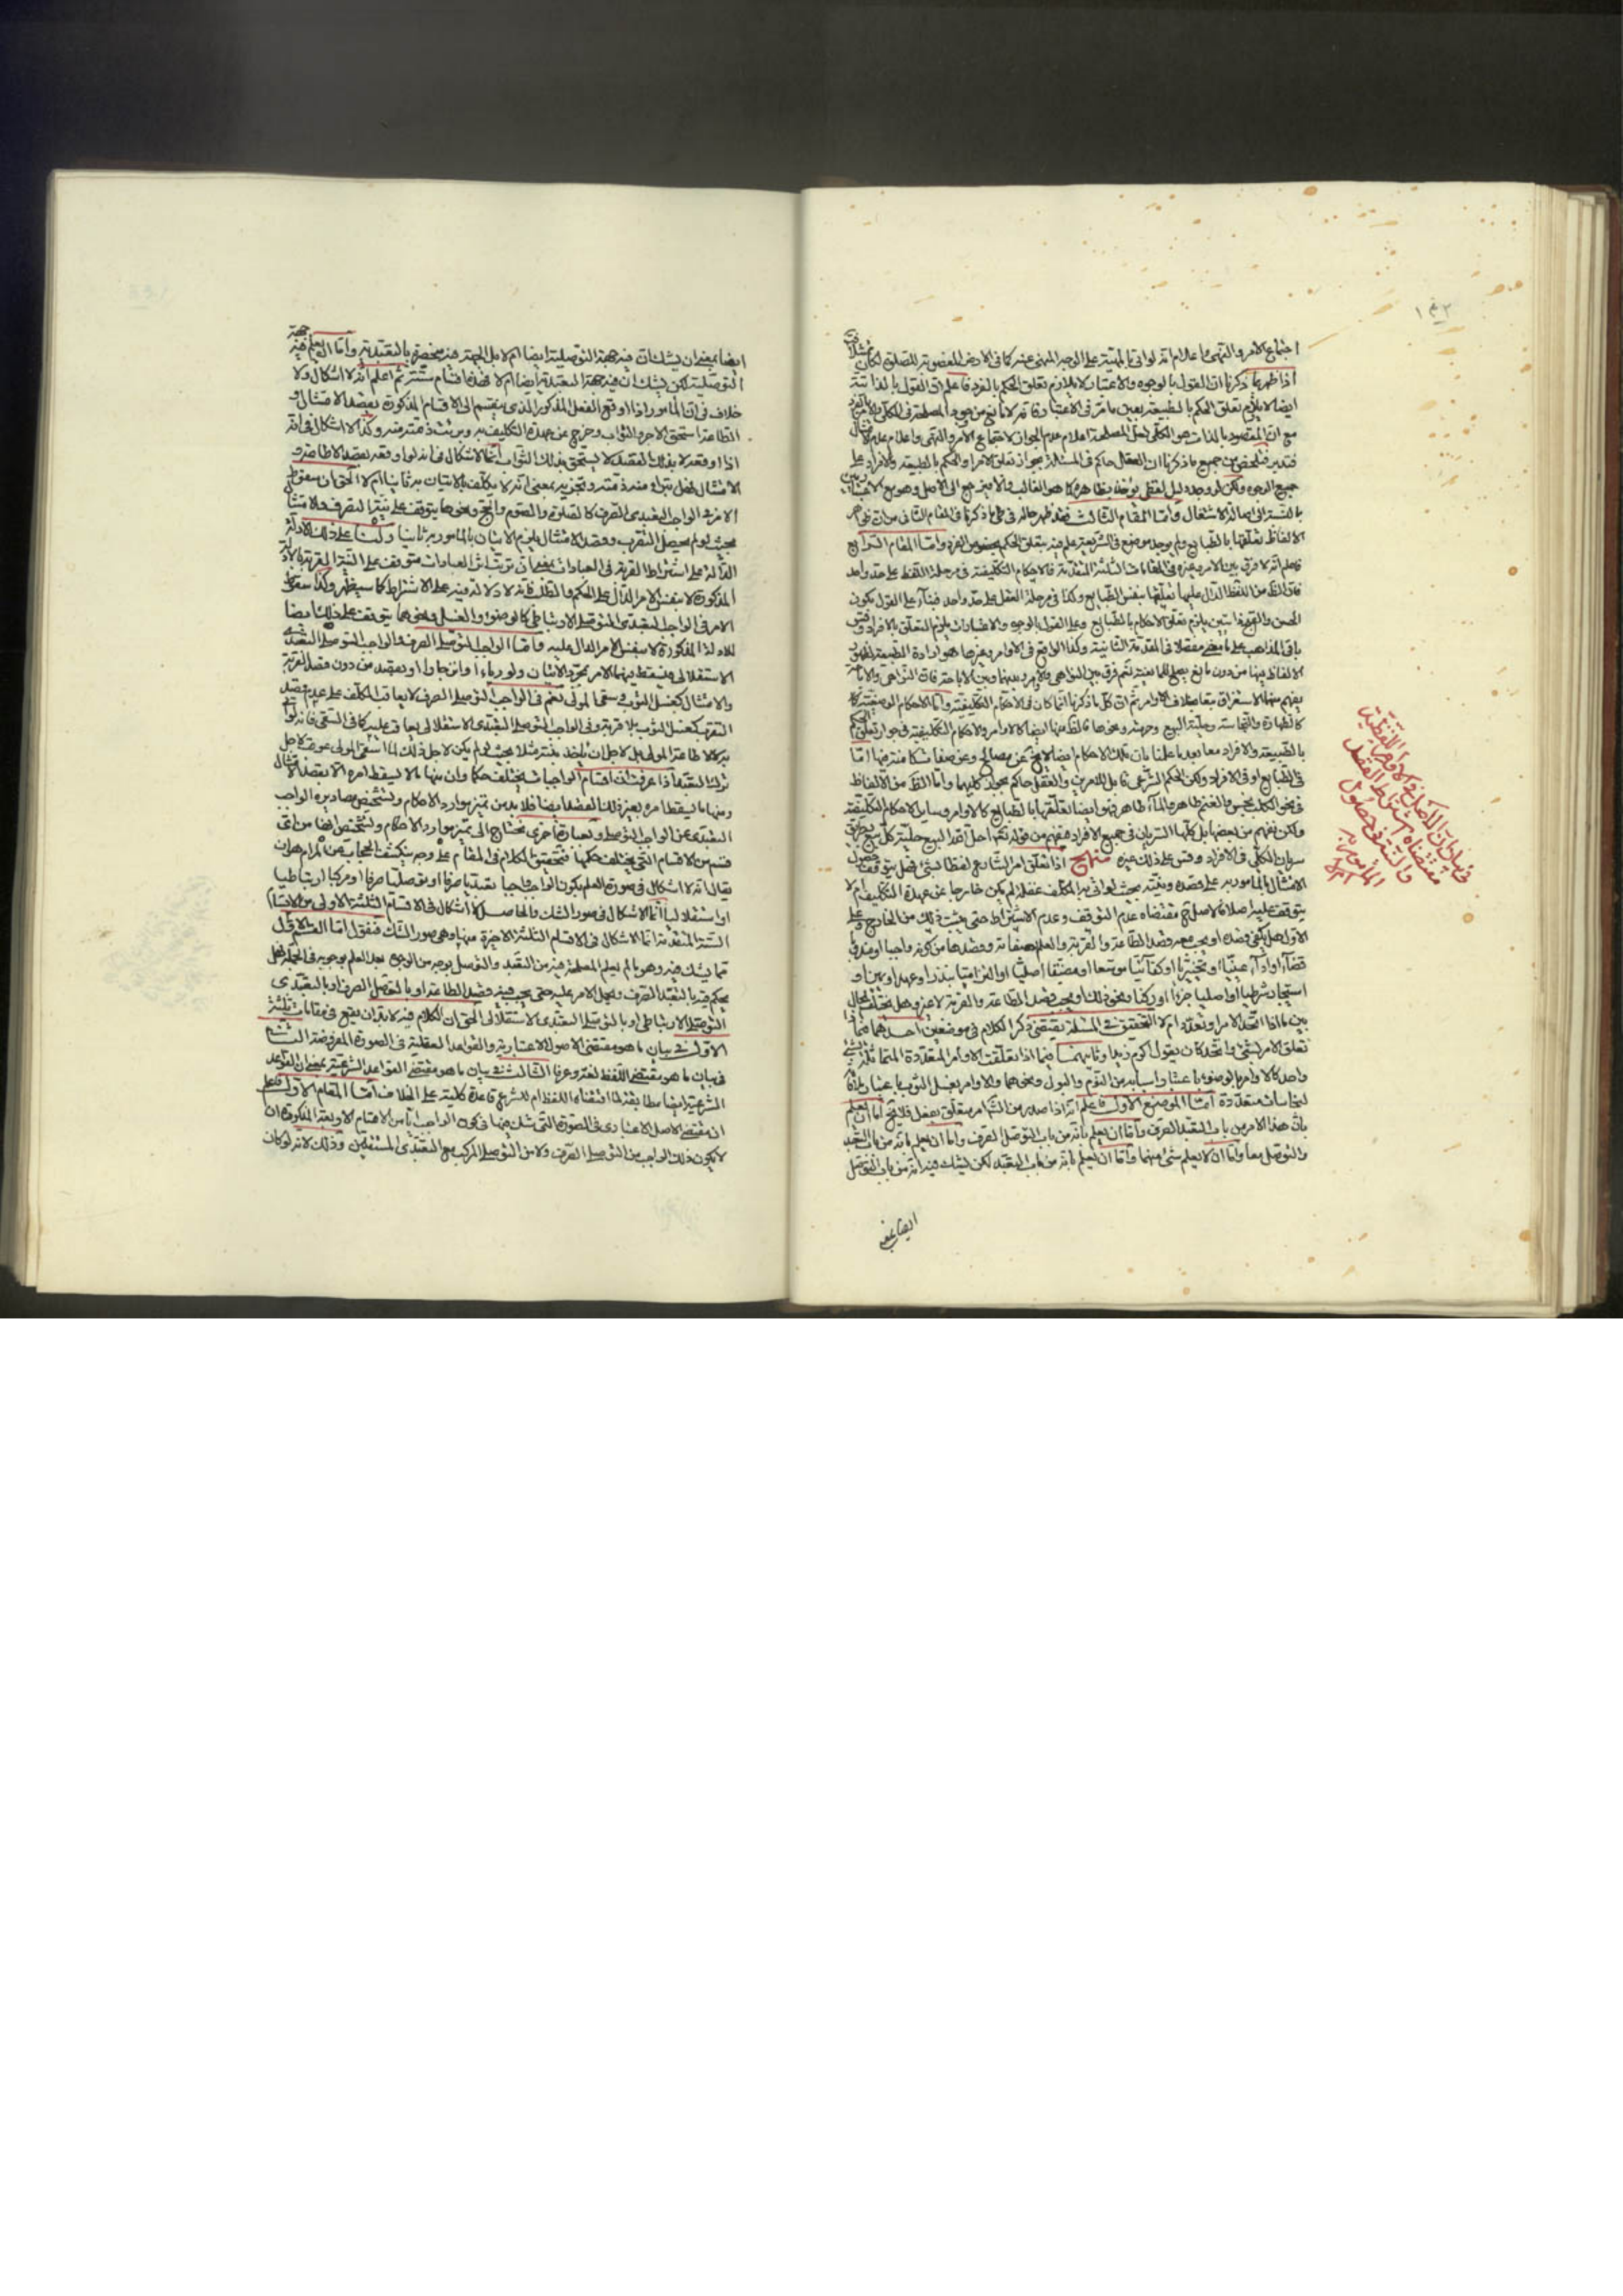 ١٤٢
اجتماع الامر والنهى
اذا ظهر ما ذكرنا ان القول بالوجوه والاعتبار لا يلازم تعلق الحكم بالفرد فاعلم ان القول بالذاتية
ايضا لا يلازم تعلق الحكم بالطبيعة
مع ان المقصود بالذات هو الكلى
فتدبر فتلخص من جميع ما ذكرنا ان العقل حاكم فى المسئلة بجواز تعلق الامر والحكم بالطبيعة والافراد على
جميع الوجوه ولكن لو وجد دليل لفظى يؤخذ بظاهره كما هو الغالب والا فيرجع الى الاصل وهو مع
واما المقام الثالث فقد ظهر حاله فى طى ما ذكرنا فى المقام الثانى من ان
الالفاظ تعلقها بالطبايع ولم يوجد موضع فى الشريعة علم فيه تعلق الحكم بخصوص الفرد واما المقام الرابع
فاعلم انه لا فرق بين الامر وغيره فى المقامات الثلثة المتقدمة فالاحكام التكليفية فى مرحلة اللفظ على حد واحد
فان الظاهر من اللفظ الدال عليها تعلقها بنفس الطبايع وكذا فى مرحلة العقل على حد واحد فبناء على القول بكون
الحسن والقبح ذاتيين يلزم تعلق الاحكام بالطبايع وعلى القول بالوجوه والاعتبارات يلزم التعلق بالافراد وقس
باقى المذاهب على ما مضى مفصلا فى المقدمة الثانية وكذا الواقع فى الاوامر وغيرها هو ارادة الطبيعة لظهور
الالفاظ فيها من دون مانع
كالطهارة والنجاسة وحلية البيع وحرمته ونحوها
بالطبيعة والافراد معا بعد ما علمنا بان تلك الاحكام ايضا لا تخ عن مصالح
فى الطبايع او فى الافراد ولكن الحكم الشرعى قابل للامرين والعقل حاكم بجواز كليهما واما الظاهر من الالفاظ
فى نحو الكلب نجس والغنم طاهر والماء طاهر فهو ايضا تعلقها بالطبايع كالاوامر وساير الاحكام التكليفية
ولكن نفهم من بعضها بل كلها السريان فى جميع الافراد فنفهم من قوله تعالى احل الله البيع حلية كل بيع
سريان الكلى فى الافراد وقس على ذلك غيره منهاج اذا تعلق امر الشارع لفظا بشئ فهل يتوقف حصول
الامتثال بالمامور به على قصده ونيته بحيث لو اتى به المكلف غفلة لم يكن خارجا عن عهدة التكليف ام لا
يتوقف عليه اصلا فالاصل مقتضاه عدم التوقف وعدم الاشتراط حتى يثبت ذلك من الخارج وعلى
الاول هل يكفى قصده او يجب معه قصد الطاعة والقربة والعلم بصفاته وقصدها من كونه واجبا او مندوبا
قضاء او اداء عينيا او تخييريا او كفائيا موسعا او مضيقا اصليا او التزاميا بنذر او عهد او يمين او
استيجار شرطيا او اصليا جزءا او ركنا ونحو ذلك او يجب قصد الطاعة والقربة لا غير وهل يختلف الحال
بين ما اذا اتحد الامر او تعدد ام لا التحقيق فى المسئلة يقتضى ذكر الكلام فى موضعين احدهما فيما اذا
تعلق الامر بشئ واتحد كان يقول اكرم زيدا وثانيهما فيما اذا تعلقت الاوامر المتعددة المتماثلة بشئ
واحد كالاوامر بالوضوء باعتبار اسبابه من النوم والبول ونحوهما والاوامر بغسل الثوب باعتبار ملاقاة
نجاسات متعددة اما الموضع الاول فاعلم انه اذا صدر من الش امر متعلق بفعل فلا يخ اما ان يعلم
بان هذا الامر من باب التعبد الصرف واما ان يعلم بانه من باب التوصل الصرف واما ان يعلم بانه من باب التعبد
والتوصل معا واما ان لا يعلم شئ منهما واما ان يعلم بانه من باب التعبد لكن يشك فيه انه من باب التوصل
فى بيان ان الاصل فى الاوامر اللفظية
مقتضاه اشتراط القصد
والنية فى حصول
المامور به
ام لا
ايضا بمعنى ان يشك ان فيه جهة التوصلية ايضا ام لا بل الجهة فيه منحصرة بالتعبدية واما العلم فيه جهة
التوصلية لكن يشك ان فيه جهة التعبدية ايضا ام لا فهذه اقسام ستة ثم اعلم انه لا اشكال ولا
خلاف فى ان المامور اذا اوقع الفعل المذكور الذى ينقسم الى الاقسام المذكورة بقصد الامتثال و
الطاعة استحق الاجر والثواب وخرج عن عهدة التكليف به وبرئت ذمته منه وكذا لا اشكال فى انه
اذا اوقعه لا بذلك القصد لا يستحق بذلك الثواب انما الاشكال فى انه لو اوقعه بقصد الاطاعة و
الامتثال فهل تبرء منه ذمته وتجزيه بمعنى انه لا يكلف بالاتيان به ثانيا ام لا الحق ان سقوط
الامر فى الواجب التعبدى الصرف كالصلوة والصوم والحج ونحوها يتوقف على نية التقرب والامتثال
بحيث لو لم يحصل التقرب وقصد الامتثال يلزم الاتيان بالمامور به ثانيا ولنا على ذلك الادلة
الدالة على اشتراط القربة فى العبادات بمعنى ان ترتب اثر العبادات متوقف على النية المقربة بالادلة
المذكورة لا بنفس الامر الدال على الحكم والطلب فانه لا دلالة فيه على الاشتراط كما سيظهر وكذا سقوط
الامر فى الواجب التعبدى التوصلى الارتباطى كالوضوء والغسل ونحوهما يتوقف على ذلك ايضا
للادلة المذكورة لا بنفس الامر الدال عليه واما الواجب التوصلى الصرف والواجب التوصلى التعبدى
الاستقلالى فيسقط فيهما الامر بمجرد الاتيان ولو رياء او انزجارا او بقصد من دون قصد القربة
والامتثال كغسل الثوب وسقى المولى نعم فى الواجب التوصلى الصرف لا يعاقب المكلف على عدم قصد
التقرب كغسل الثوب بلا قربة وفى الواجب التوصلى التعبدى الاستقلالى يعاقب عليه كما فى السقى فانه لو اتى
به لا لاطاعة المولى بل لاجل ان ياخذ منه شيئا بحيث لو لم يكن لاجل ذلك لما اسقى المولى عوقب لاجل
ترك التعبد اذا عرفت ان اقسام الواجبات مختلف حكما وان منها ما لا يسقط امره الا بقصد الامتثال
ومنها ما يسقط امره بغير ذلك القصد ايضا فلا بد من تميز موارد الاحكام وتشخيص مصاديق الواجب
التعبدى عن الواجب التوصلى وبعبارة اخرى نحتاج الى تميز موارد الاحكام وتشخيص انها من اى
قسم من الاقسام التى يختلف حكمها فتحقيق الكلام فى المقام على وجه ينكشف الحجاب عن المرام هو ان
يقال انه لا اشكال فى صورة العلم بكون الواجب واجبا تعبديا صرفا او توصليا صرفا او مركبا ارتباطيا
او استقلاليا انما الاشكال فى صور الشك والحاصل لا اشكال فى الاقسام الثلثة الاولى من الاقسام
الستة المتقدمة انما الاشكال فى الاقسام الثلثة الاخيرة منها وهى صور الشك فنقول اما القسم الاول
مما يشك فيه وهو ما لم يعلم المصلحة فيه من التعبد والتوسل بوجه من الوجوه بعد العلم بوجوبه فى الجملة فهل
يحكم فيه بالتعبد الصرف ويحمل الامر عليه حتى يجب فيه قصد الطاعة او بالتوصل الصرف او بالتعبدى
التوصلى الارتباطى او بالتوصلى التعبدى الاستقلالى الحق ان الكلام فيه لا بد ان يقع فى مقامات ثلثة
الاول فى بيان ما هو مقتضى الاصول الاعتبارية والقواعد العقلية فى الصورة المفروضة الثانى
فى بيان ما هو مقتضى اللفظ لغة وعرفا الثالث فى بيان ما هو مقتضى القواعد الشرعية بمعنى ان القواعد
الشرعية ايضا مطابقة لما اقتضاه اللفظ ام للشرع قاعدة كلية على الخلاف اما المقام الاول فاعلم
ان مقتضى الاصل الاعتبارى فى الصورة التى شك فيها فى كون الواجب اى من الاقسام الاربعة المذكورة ان
لا يكون ذلك الواجب من التوصلى الصرف ولا من التوصلى المركب مع التعبدى المستقلين وذلك لانه لو كان